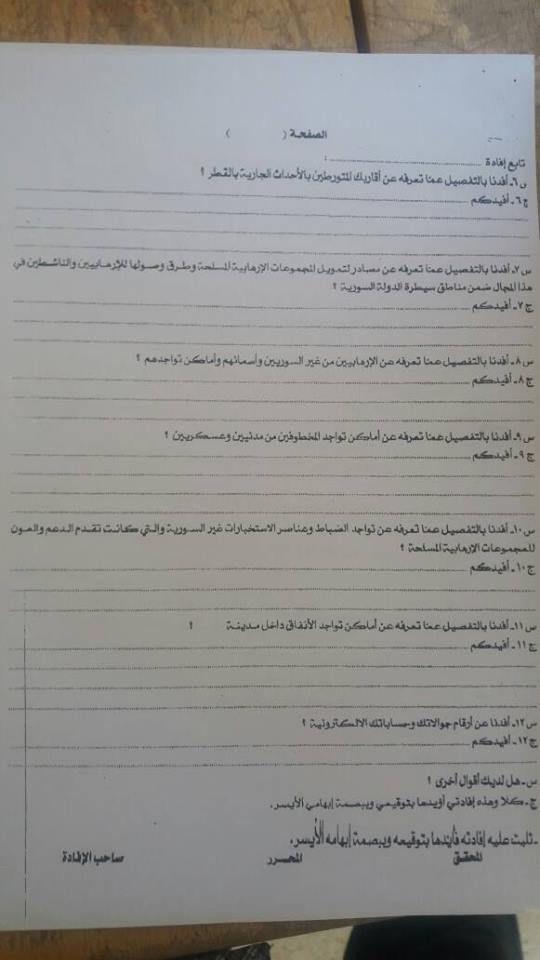 الصفحة ( )
تابع إفادة .................... :
س٦ـ أفدنا بالتفصيل عما تعرفه عن أقاربك المتورطين بالأحداث الجارية بالقطر ؟
ج٦ـ أفيدكم
س٧ـ أفدنا بالتفصيل عما تعرفه عن مصادر لتمويل المجموعات الإرهابية المسلحة وطرق وصولها للإرهابيين والناشطين في
هذا المجال ضمن مناطق سيطرة الدولة السورية ؟
ج٧ـ أفيدكم
س٨ـ أفدنا بالتفصيل عما تعرفه عن الإرهابيين من غير السوريين وأسمائهم وأماكن تواجدهم ؟
ج٨ـ أفيدكم
س٩ـ أفدنا بالتفصيل عما تعرفه عن أماكن تواجد المخطوفين من مدنيين وعسكريين ؟
ج٩ـ أفيدكم
س١٠ـ أفدنا بالتفصيل عما تعرفه عن تواجد الضباط وعناصر الاستخبارات غير السورية والتي كانت تقدم الدعم والعون
للمجموعات الإرهابية المسلحة ؟
ج١٠ـ أفيدكم
س١١ـ أفدنا بالتفصيل عما تعرفه عن أماكن تواجد الأنفاق داخل مدينة ؟
ج١١ـ أفيدكم
س١٢ـ أفدنا عن أرقام جوالاتك وحساباتك الالكترونية ؟
ج١٢ـ أفيدكم
س ـ هل لديك أقوال أخرى ؟
ج ـ كلا وهذه إفادتي أؤيدها بتوقيعي وببصمة إبهامي الأيسر.
ـ تليت عليه إفادته فأيدها بتوقيعه وببصمة إبهامه الأيسر.
المحقق المحرر صاحب الإفادة